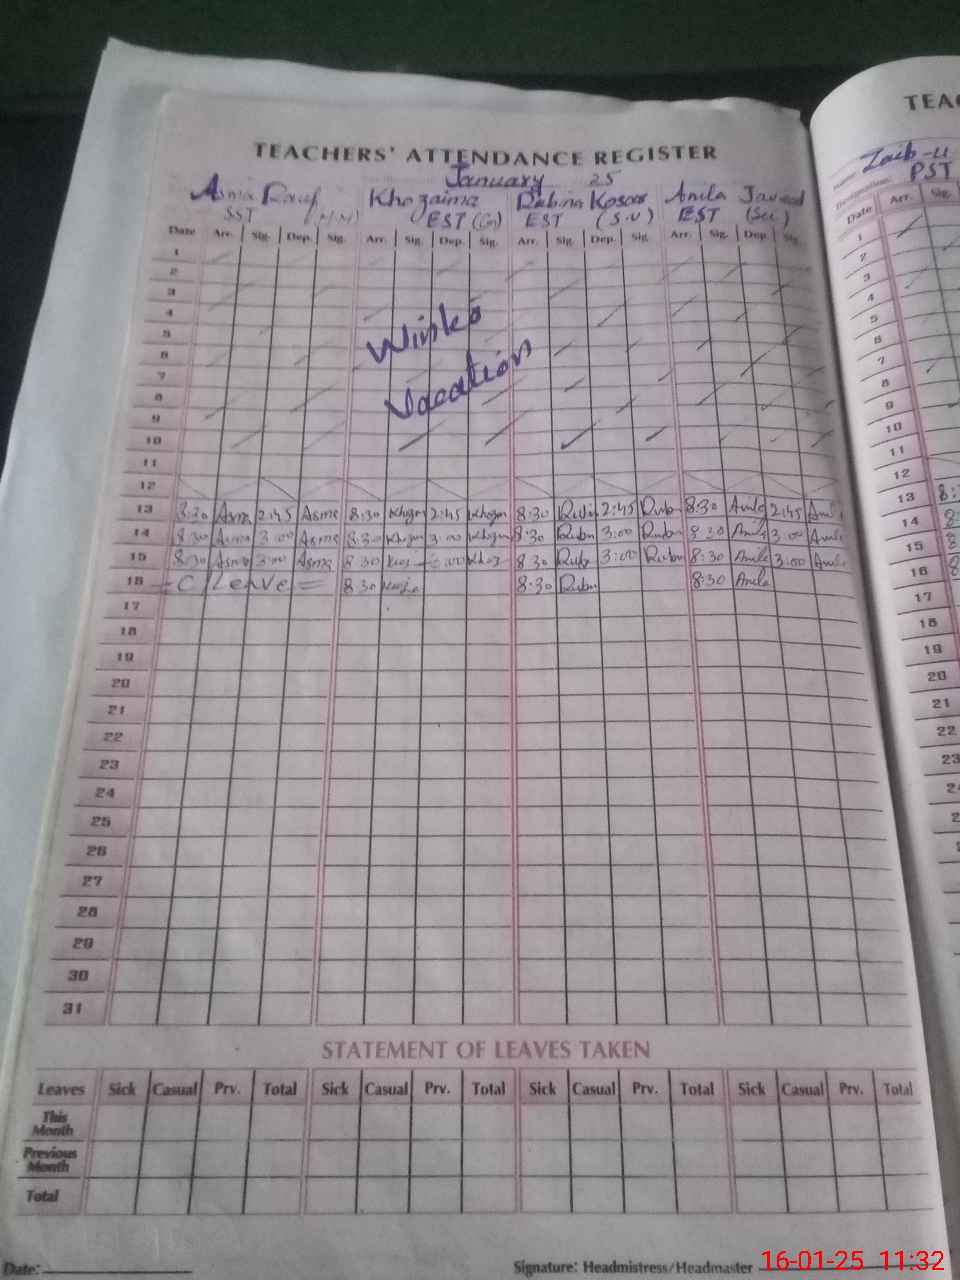 TEACHERS' ATTENDANCE REGISTER
January 25
Asma Rauf Khozaima Rubina Kosar Anila Javed
SST EST EST (S.V) EST
Date Arr. Sig. Dep. Sig. Arr. Sig. Dep. Sig. Arr. Sig. Dep. Sig. Arr. Sig. Dep. Sig.
1
2
3
4
5
6
7
8
9
10
11
12
Winter
Vacation
13 8:30 Asma 2:45 Asma 8:30 Khozan 2:45 Khozan 8:30 Rubn 2:45 Rubn 8:30 Anila 2:45 Anila
14 8:30 Asma 3:00 Asma 8:30 Khozan 3:00 Khozan 8:30 Rubn 3:00 Rubn 8:30 Anila 3:00 Anila
15 8:30 Asma 3:00 Asma 8:30 3:00 Khoz 8:30 Rubn 3:00 Rubn 8:30 Anila 3:00 Anila
16 C Leave 8:30 8:30 Rubn 8:30 Anila
17
18
19
20
21
22
23
24
25
26
27
28
29
30
31
STATEMENT OF LEAVES TAKEN
Leaves Sick Casual Prv. Total Sick Casual Prv. Total Sick Casual Prv. Total Sick Casual Prv. Total
This
Month
Previous
Month
Total
Date: Signature: Headmistress/Headmaster
TEAC
Name: Zaib-u
Designation: PST
Date Arr. Sig.
1
2
3
4
5
6
7
8
9
10
11
12
13 8:
14 8:
15 8
16 8
17
18
19
20
21
22
23
16-01-25 11:32